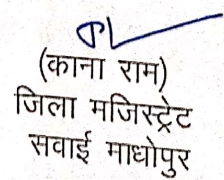 (काना राम)
जिला मजिस्ट्रेट
सवाई माधोपुर